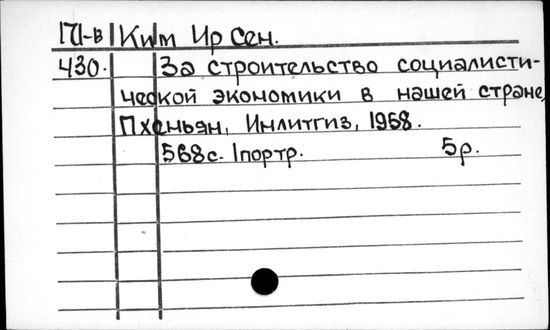 Ким Ир Сен.
430. За строительство социалисти-
ческой экономики в нашей стране,
Пхеньян, Инлитгиз, 1968.
568с. 1портр. 5р.